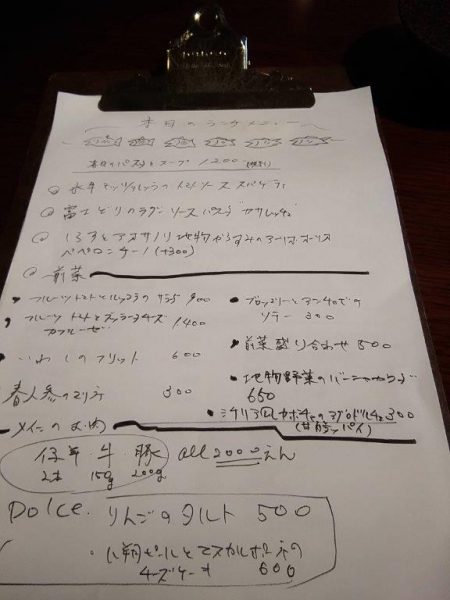 本日のランチメニュー
本日のパスタとスープ 1200
水牛モッツァレラのトマトソース スパゲティ
富士どりのラグーソース パスタ
しらすとアオサノリ 地物からすみのアーリオオーリオ
ペペロンチーノ (+300)
前菜
・フルーツトマトとルッコラのサラダ 900
・フルーツトマトとブッラータチーズ
カプレーゼ 1,400
・いわしのフリット 600
春人参のマリネ 300
・ブロッコリーとアンチョビの
ソテー 300
・前菜盛り合わせ 500
・地物野菜のバーニャカウダ
650
・シチリア風カボチャのアグロドルチェ 300
(甘酸っパイ)
メインのお肉
仔羊・牛・豚 all 2000えん
2本 150g 200g
Dolce. りんごのタルト 500
・八朔ピールとマスカルポーネの
チーズケーキ 600